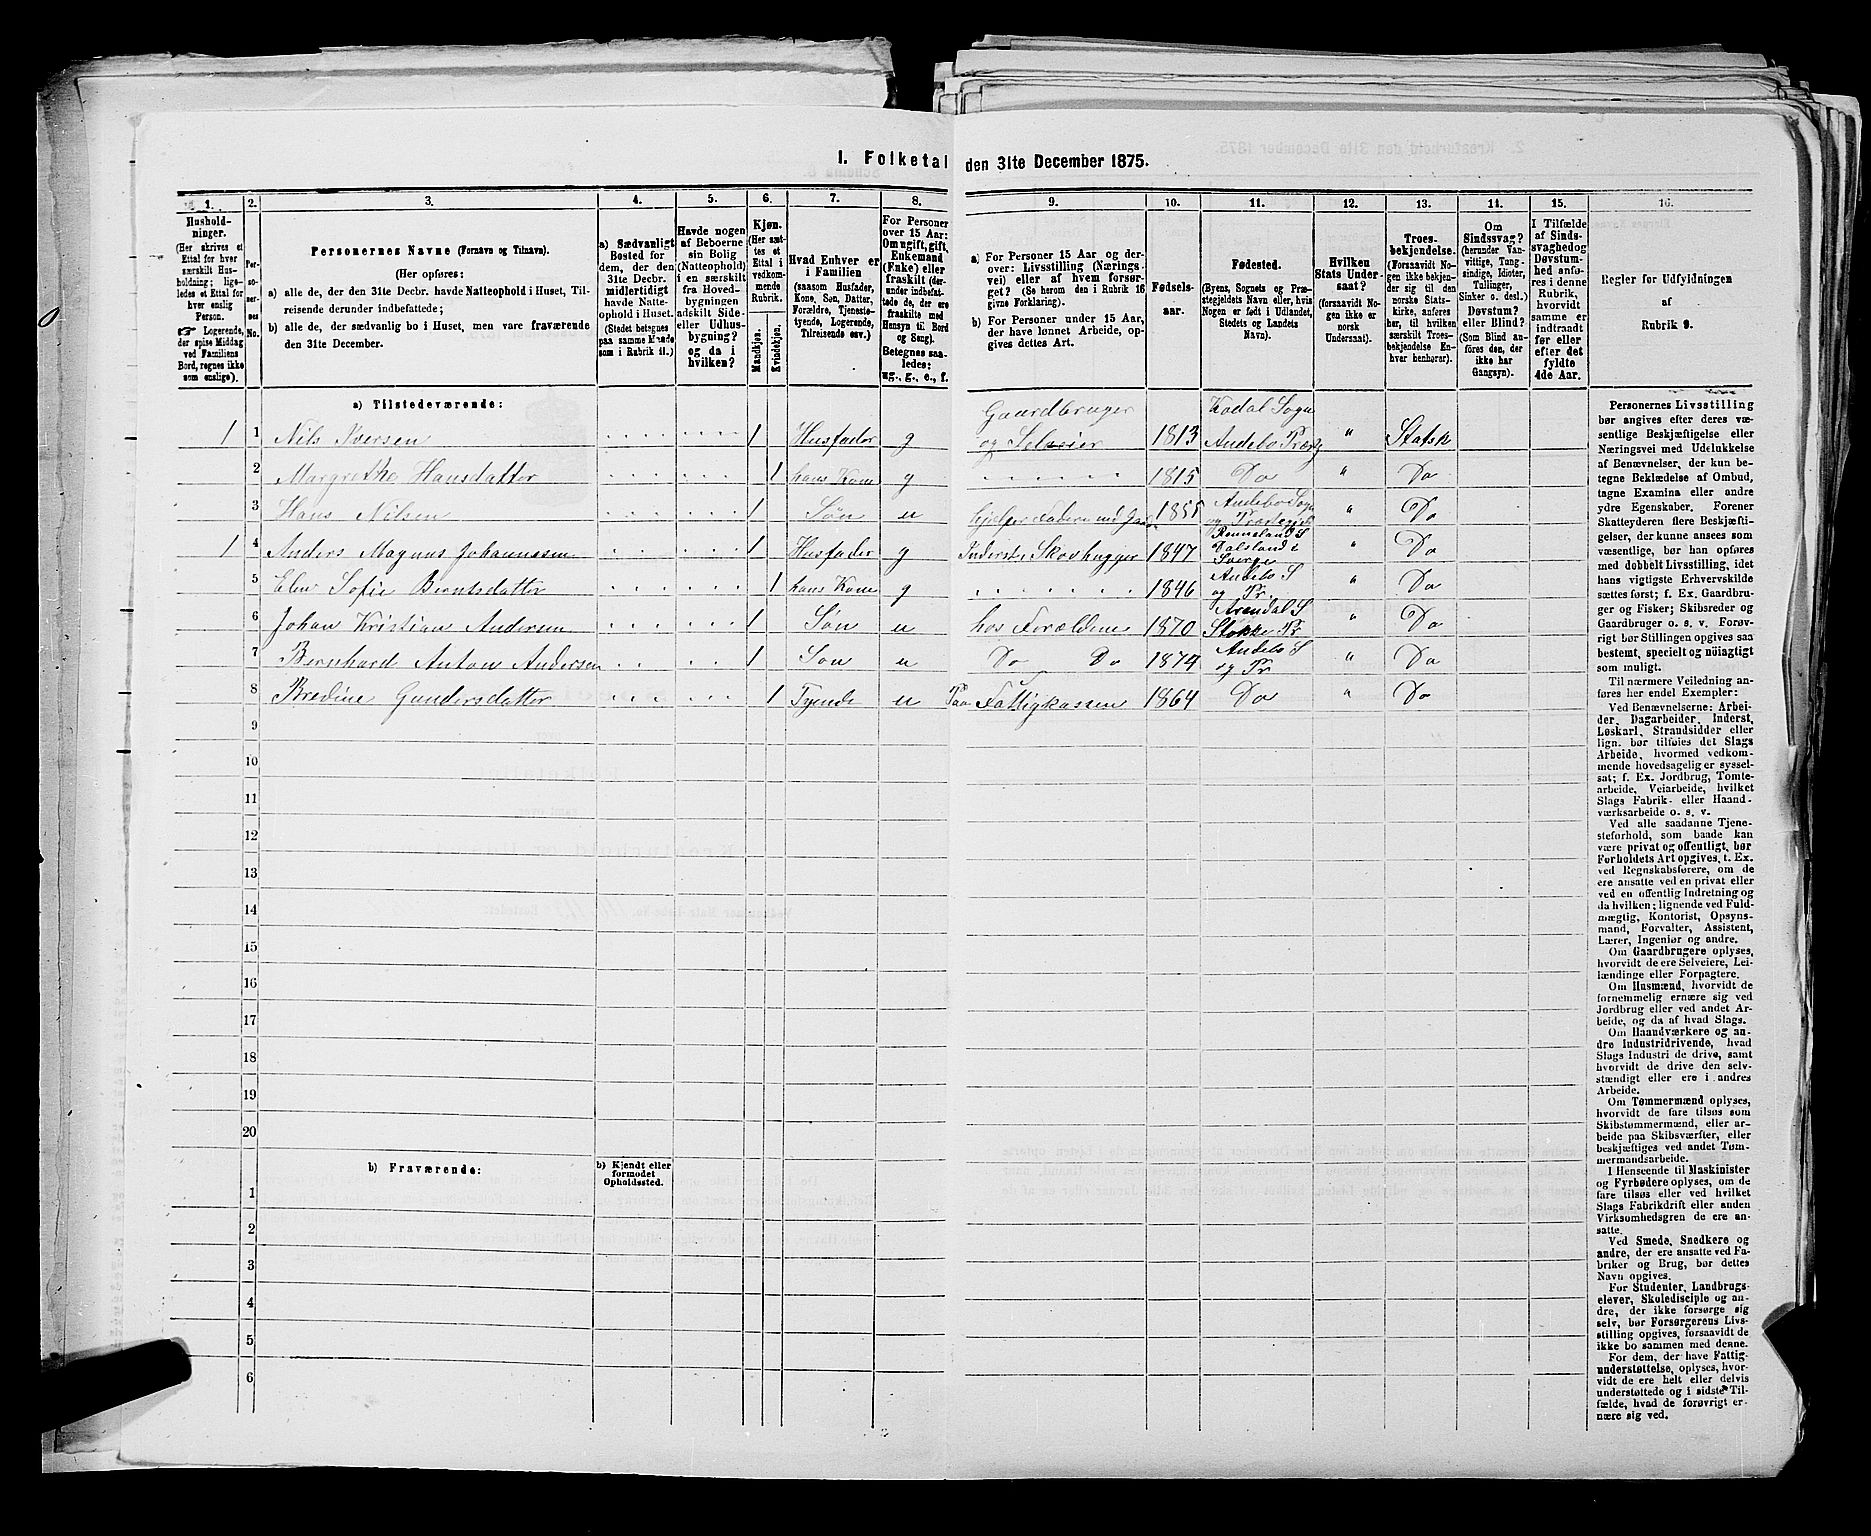 I. Folketal den 31te December 1875.
1. 2. 3. 4. 5. 6. 7. 8. 9. 10. 11. 12. 13. 14. 15. 16.
Hushold-
ninger.
(Her skrives et
Ettal for hver
særskilt Hus-
holdning; lige-
ledes et Ettal for
hver enslig
Person.
☞ Logerende,
der spise Middag
ved Familiens
Bord, regnes ikke
som enslige).
Per-
soner-
nes
No.
Personernes Navne (Fornavn og Tilnavn).
(Her opføres:
a) alle de, der den 31te Decbr. havde Natteophold i Huset, Til-
reisende derunder indbefattede;
b) alle de, der sædvanlig bo i Huset, men vare fraværende
den 31te December.
a) Sædvanligt
Bosted for
dem, der den
31te Decbr.
midlertidigt
havde Natte-
ophold i Huset.
(Stedet betegnes
paa samme Maade
som i Rubrik 11.)
Havde nogen
af Beboerne
sin Bolig
(Natteophold)
i en særskilt
fra Hoved-
bygningen
adskilt Side-
eller Udhus-
bygning?
og da i
hvilken?
Kjøn.
(Her sæt-
tes et
Ettal i
vedkom-
mende
Rubrik.
Mandkjøn.
Kvindekjøn.
Hvad Enhver er
i Familien
(saasom Husfader,
Kone, Søn, Datter,
Forældre, Tjeneste-
tyende, Logerende,
Tilreisende osv.)
For Personer
over 15 Aar:
Om ugift, gift,
Enkemand
(Enke) eller
fraskilt (der-
under indbefat-
tede de, der ere
fraskilte med
Hensyn til Bord
og Seng).
Betegnes saa-
ledes:
ug., g., e., f.
a) For Personer 15 Aar og der-
over: Livsstilling (Nærings-
vei) eller af hvem forsør-
get? (Se herom den i Rubrik 16
givne Forklaring).
b) For Personer under 15 Aar,
der have lønnet Arbeide, op-
gives dettes Art.
Fødsels-
aar.
Fødested.
(Byens, Sognets og Præ-
stegjeldets Navn eller, hvis
Nogen er født i Udlandet,
Stedets og Landets
Navn).
Hvilken
Stats Under-
saat?
(forsaavidt No-
gen ikke er
norsk
Undersaat).
Troes-
bekjendelse.
(Forsaavidt No-
gen ikke bekjen-
der sig til den
norske Stats-
kirke, anføres
her, til hvilken
særskilt Troes-
bekjendelse En-
hver henhører).
Om
Sindssvag?
(herunder Van-
vittige, Tung-
sindige, Idioter,
Tullinger,
Sinker o. desl.)
Døvstum?
eller Blind?
(Som Blind an-
føres den, der
ikke har
Gangsyn).
I Tilfælde
af Sinds-
svaghed og
Døvstum-
hed anfø-
res i denne
Rubrik,
hvorvidt
samme er
indtraadt
før eller
efter det
fyldte
4de Aar.
Regler for Udfyldningen
af
Rubrik 9.
a) Tilstedeværende:
1 1 Nils Iversen 1 Husfader g Gaardbruger og Selveier 1813 Kodal Sogn Andebo Præstg " Statsk
2 Margrethe Hansdatter 1 hans Kone g 1815 Do " Do
3 Hans Nilsen 1 Søn u hjelper Faderen med 1855 Andebo Sogn og Præstegj " Do
1 4 Anders Magnus Johannssen 1 Husfader g Inderst Skovhugger 1847 Dalsland i Sverge " Do
5 Elen Sofie Berntsdatter 1 hans Kone g 1846 Andebo S og Pr. " Do
6 Johan Kristian Andersen 1 Søn u hos Forældrene 1870 Arendal S Stokke Pr " Do
7 Bernhard Anton Andersen 1 Søn u Do Do 1874 Andebo S og Pr " Do
8 Bredine Gundersdatter 1 Tyende u Paa Fattigkassen 1864 Do " Do
9
10
11
12
13
14
15
16
17
18
19
20
b) Fraværende:
b) Kjendt eller
formodet
Opholdssted.
1
2
3
4
5
6
Personernes Livsstilling
bør angives efter deres væ-
sentlige Beskjæftigelse eller
Næringsvei med Udelukkelse
af Benævnelser, der kun be-
tegne Beklædelse af Ombud,
tagne Examina eller andre
ydre Egenskaber. Forener
Skatteyderen flere Beskjæfti-
gelser, der kunne ansees som
væsentlige, bør han opføres
med dobbelt Livsstilling, idet
hans vigtigste Erhvervskilde
sættes først; f. Ex. Gaardbru-
ger og Fisker; Skibsreder og
Gaardbruger o. s. v. Forøv-
rigt bør Stillingen opgives saa
bestemt, specielt og nøiagtigt
som muligt.
Til nærmere Veiledning an-
føres her endel Exempler:
Ved Benævnelserne: Arbei-
der, Dagarbeider, Inderst,
Løskarl, Strandsidder eller
lign. bør tilføies det Slags
Arbeide, hvormed vedkom-
mende hovedsagelig er syssel-
sat; f. Ex. Jordbrug, Tomte-
arbeide, Veiarbeide, hvilket
Slags Fabrik- eller Haand-
værksarbeide o. s. v.
Ved alle saadanne Tjene-
steforhold, som baade kan
være privat og offentligt, bør
Forholdets Art opgives, t. Ex.
ved Regnskabsførere, om de
ere ansatte ved en privat eller
ved en offentlig Indretning og
da hvilken; lignende ved Fuld-
mægtig, Kontorist, Opsyns-
mand, Forvalter, Assistent,
Lærer, Ingeniør og andre.
Om Gaardbrugere oplyses,
hvorvidt de ere Selveiere, Lei-
lændinge eller Forpagtere.
Om Husmænd, hvorvidt de
fornemmelig ernære sig ved
Jordbrug eller ved andet Ar-
beide, og da af hvad Slags.
Om Haandværkere og an-
dre Industridrivende, hvad
Slags Industri de drive, samt
hvorvidt de drive den selv-
stændigt eller ere i andres
Arbeide.
Om Tømmermænd oplyses,
hvorvidt de fare tilsøs som
Skibstømmermænd, eller ar-
beide paa Skibsværfter, eller
beskjæftiges ved andet Tøm-
mermandsarbeide.
I Henseende til Maskinister
og Fyrbødere oplyses, om de
fare tilsøs eller ved hvilket
Slags Fabrikdrift eller anden
Virksomhedsgren de ere an-
satte.
Ved Smede, Snedkere og
andre, der ere ansatte ved Fa-
briker og Brug, bør dettes
Navn opgives.
For Studenter, Landbrugs-
elever, Skoledisciple og an-
dre, der ikke forsørge sig
selv, bør Forsørgerens Livs-
stilling opgives, forsaavidt de
ikke bo sammen med denne.
For dem, der have Fattig-
understøttelse, oplyses, hvor-
vidt de ere helt eller delvis
understøttede og i sidste Til-
fælde, hvad de forøvrigt er-
nære sig ved.